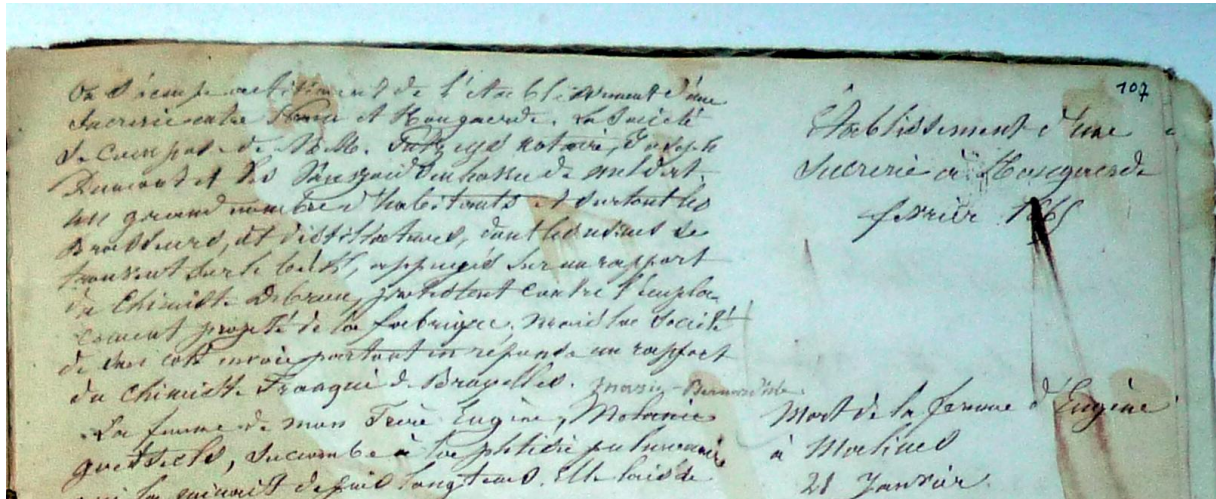 107
On s'occupe activement de l'établissement d'une
sucrerie entre et Hougaerde. La Société
se compose de M.M. notaire, Joseph
Dumont et de Meldert.
Un grand nombre d'habitants et surtout les
Brasseurs, et distillateurs, dont les usines se
trouvent sur la , appuyés sur un rapport
du Chimiste , protestent contre l'empla-
cement projeté de la fabrique, mais la Société
de son coté envoie partout en réponse un rapport
du Chimiste Francqui de Bruxelles.
La femme de mon Frère Eugène, Mélanie
, succombe à la phtisie pulmonaire
qui la minait depuis longtems. Elle laisse
Établissement d'une
sucrerie à Hougaerde
février 1865
Mort de la femme d'Eugène
à Malines
21 Janvier.